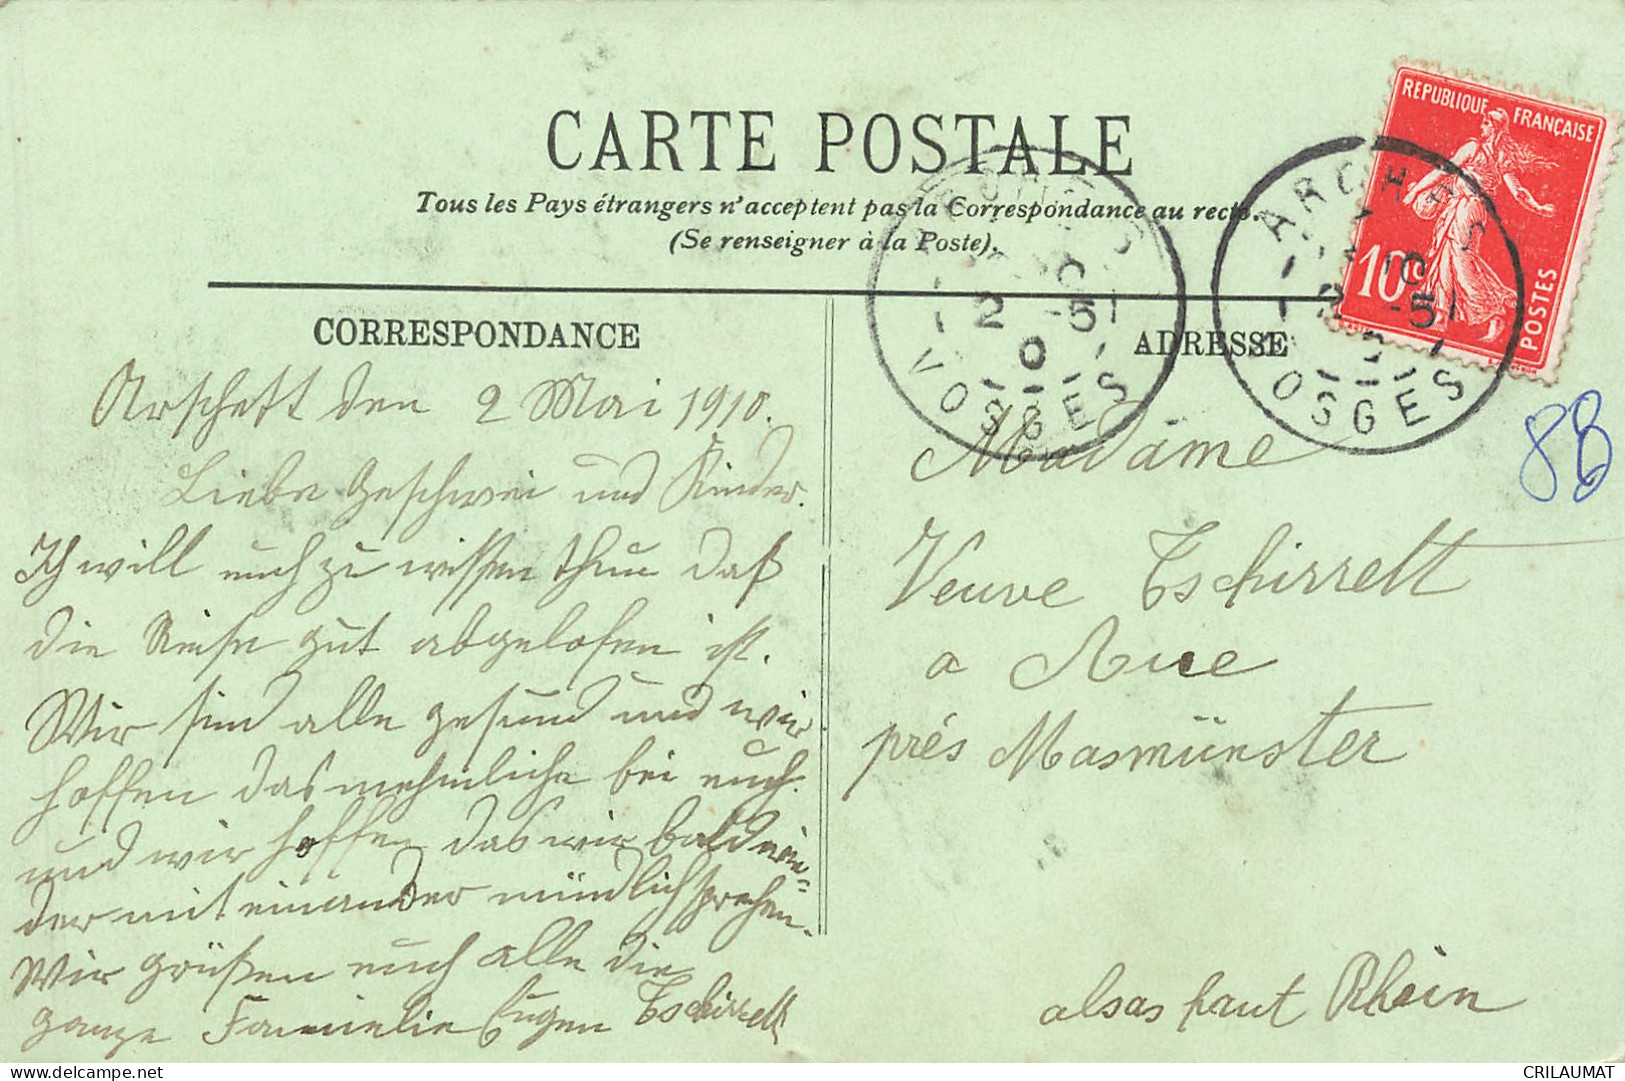 CARTE POSTALE
Tous les Pays étrangers n'acceptent pas la Correspondance au recto.
(Se renseigner à la Poste).
REPUBLIQUE FRANÇAISE
10c
POSTES
ARCHES
2 -5
10
VOSGES
ARCHES
2 -5
10
VOSGES
CORRESPONDANCE
ADRESSE
8B
Arschett den 2 Mai 1910.
Liebe Geschwei und Kinder.
Ich will euch zu wissen thun daß
die Reise gut abgelofen ist.
Wir sind alle gesund und wir
hoffen das nehmliche bei euch.
und wir hoffen das wir bald wie=
der mit einander mündlich sprechen.
Wir grüßen euch alle die
ganze Familie Eugen Tschirrett
Madame
Veuve Tschirrett
a Aue
prés Masmünster
alsas haut Rhein
CRILAUMAT